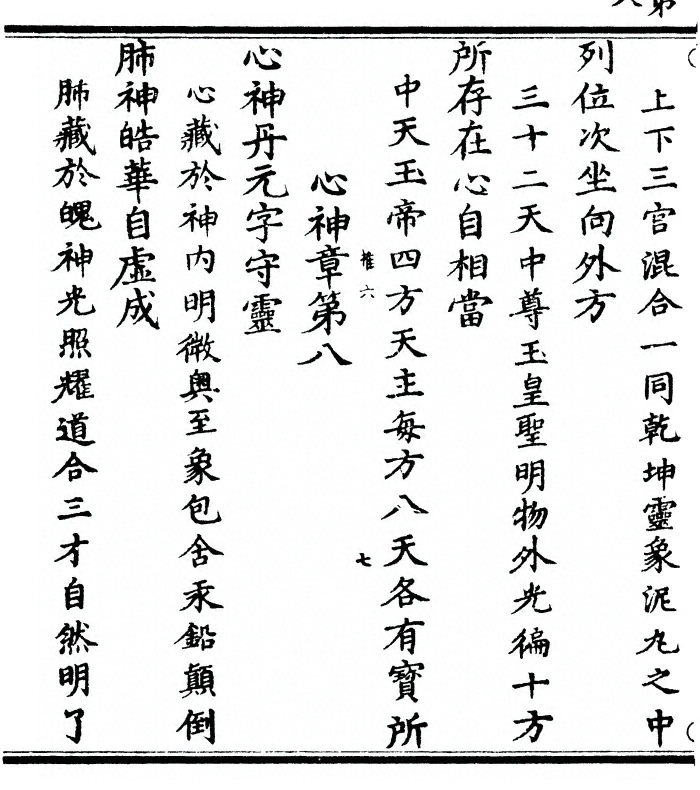 上下三宮混合一同乾坤靈象泥丸之中
列位次坐向外方
三十二天中尊玉皇聖明物外光徧十方
所存在心自相當
中天玉帝四方天主每方八天各有寶所
惟六
七
心神章第八
心神丹元字守靈
心藏於神内明微奧至象包含汞鉛顛倒
肺神皓華自虛成
肺藏於魄神光照耀道合三才自然明了